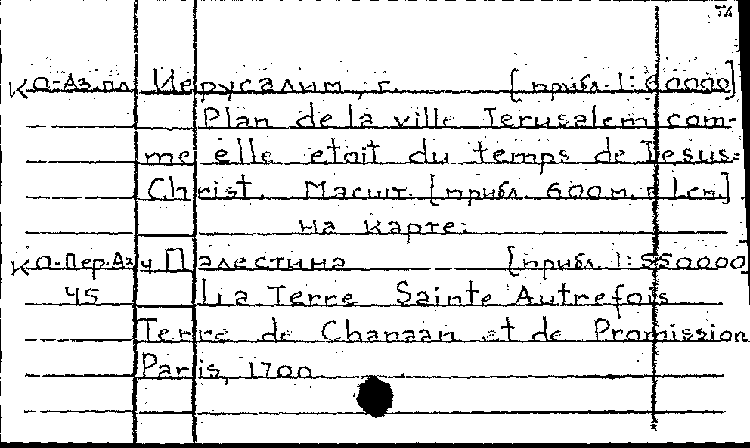 К О-Аз.пл Иерусалим, г. [прибл. 1:60000]
Plan de la ville Jerusalem com-
me elle etait du temps de Jesus-
Christ. Масшт. [прибл. 600 м. в 1 см.]
на карте:
К О-Пер.Аз ч Палестина [прибл. 1:550000]
45 La Terre Sainte Autrefois
Terre de Chanaan et de Promission
Paris, 1700